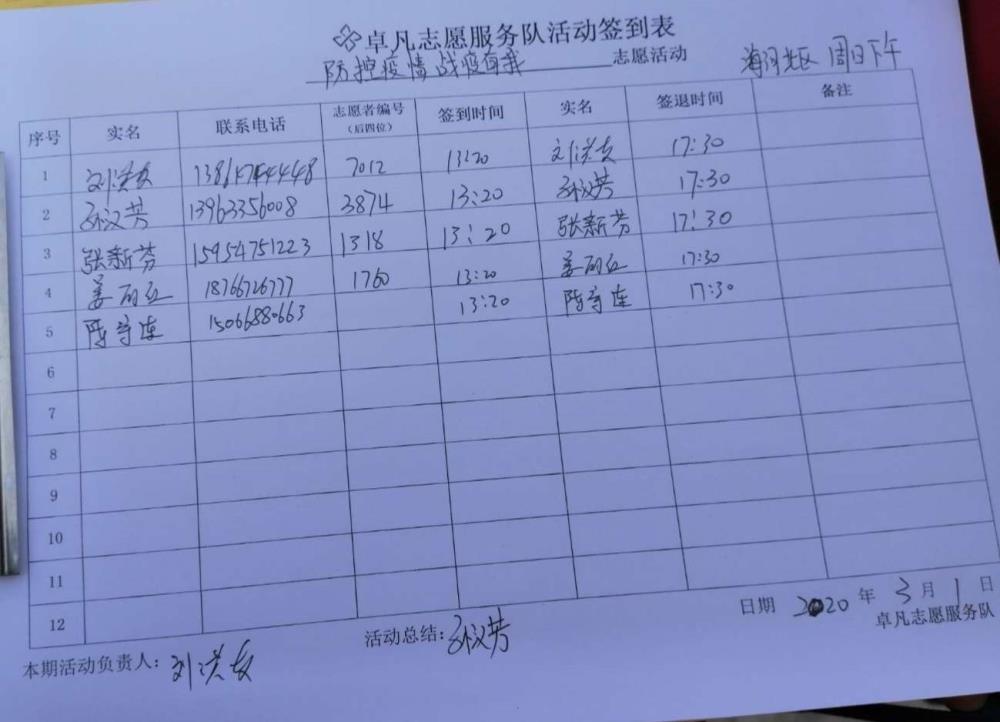 卓凡志愿服务队活动签到表
防控疫情战疫有我 志愿活动 海河北区 周日下午
序号 实名 联系电话 志愿者编号（后四位） 签到时间 实名 签退时间 备注
1 刘洪友 7012 13:20 刘洪友 17:30
2 孙汉芳 13963356008 3874 13:20 孙汉芳 17:30
3 张新芬 15954751223 1318 13:20 张新芬 17:30
4 姜丽红 18766726777 1760 13:20 姜丽红 17:30
5 陈守连 15066880663 13:20 陈守连 17:30
6
7
8
9
10
11
12
日期 2020 年 3 月 1 日
本期活动负责人：刘洪友 活动总结：孙汉芳 卓凡志愿服务队